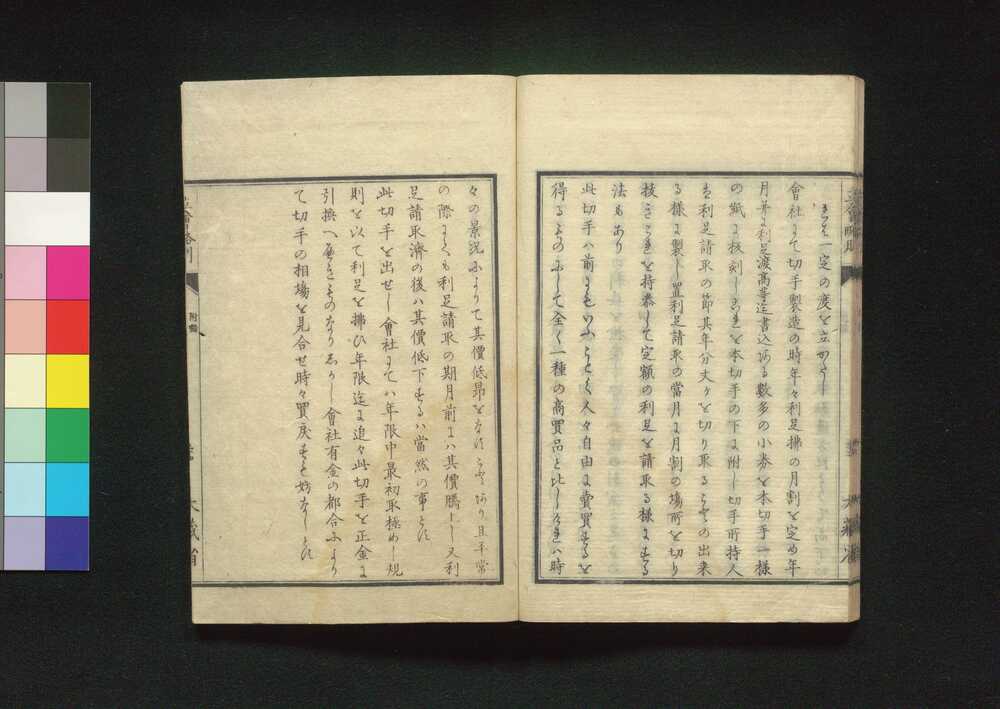 一定の度を立かたし
會社にて切手製造の時年々利足拂の月割を定め年
月并に利足渡高等迄書込ある數多の小券を本切手一様
の紙に板刻し是を本切手の下に附し切手所持人
は利足請取の節其年分丈ケを切り取る事の出来
る様に製し置利足請取の當月に月割の場所を切り
技き是を持参して定額の利足を請取る様にする
法もあり
此切手ハ前にもいふことく人々自由に賣買するを
得るものにして全く一種の商買品と比しけれハ時
々の景況によりて其價低昂をなす事あり且平常
の際にても利足請取の期月前にハ其價騰上し又利
足請取濟の後ハ其價低下するハ當然の事とす
此切手を出せし會社にてハ年限中最初取極めし規
則を以て利足を拂ひ年限迄に追々此切手を正金に
引換へきものなり然し會社有金の都合により
て切手の相場を見合せ時々買戻すも妨なしとす
立會略則
附録
大藏省